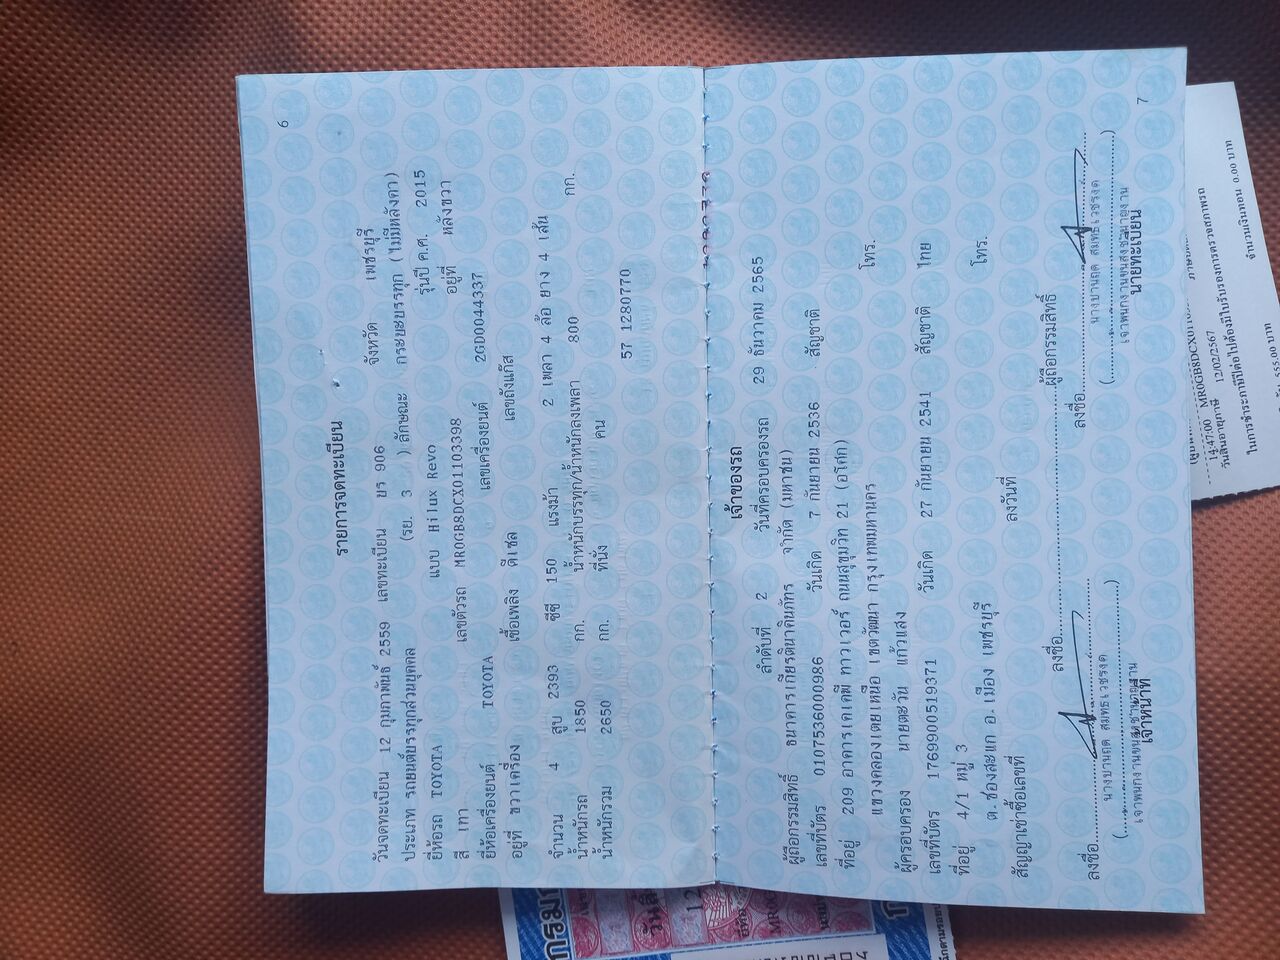 6
รายการจดทะเบียน
วันจดทะเบียน 12 กุมภาพันธ์ 2559 เลขทะเบียน ยร 906 จังหวัด เพชรบุรี
ประเภท รถยนต์บรรทุกส่วนบุคคล (รย. 3 ) ลักษณะ กระบะบรรทุก (ไม่มีหลังคา)
ยี่ห้อรถ TOYOTA แบบ Hilux Revo รุ่นปี ค.ศ. 2015
สี เทา เลขตัวรถ MR0GB8DCX01103398 อยู่ที่ หลังขวา
ยี่ห้อเครื่องยนต์ TOYOTA เลขเครื่องยนต์ 2GD0044337
อยู่ที่ ขวาเครื่อง เชื้อเพลิง ดีเซล เลขถังแก๊ส
จำนวน 4 สูบ 2393 ซีซี 150 แรงม้า 2 เพลา 4 ล้อ ยาง 4 เส้น
น้ำหนักรถ 1850 กก. น้ำหนักบรรทุก/น้ำหนักลงเพลา 800 กก.
น้ำหนักรวม 2650 กก. ที่นั่ง คน
57 1280770
เจ้าของรถ
ลำดับที่ 2 วันที่ครอบครองรถ 29 ธันวาคม 2565
ผู้ถือกรรมสิทธิ์ ธนาคารเกียรตินาคินภัทร จำกัด (มหาชน)
เลขที่บัตร 0107536000986 วันเกิด 7 กันยายน 2536 สัญชาติ
ที่อยู่ 209 อาคารเคเคพี ทาวเวอร์ ถนนสุขุมวิท 21 (อโศก)
แขวงคลองเตยเหนือ เขตวัฒนา กรุงเทพมหานคร โทร.
ผู้ครอบครอง นายตะวัน แก้วแสง
เลขที่บัตร 1769900519371 วันเกิด 27 กันยายน 2541 สัญชาติ ไทย
ที่อยู่ 4/1 หมู่ 3
ต.ช่องสะแก อ.เมือง เพชรบุรี โทร.
สัญญาเช่าซื้อเลขที่ ลงวันที่
ลงชื่อ ผู้ถือกรรมสิทธิ์
ลงชื่อ ลงชื่อ
เจ้าหน้าที่ นายทะเบียน
7
14:47:00 MR0GB8DCX01
วันสิ้นอายุภาษี 12/02/2567
ในการชำระภาษีปีต่อไปต้องมีใบรับรองการตรวจสภาพรถ
555.00 บาท จำนวนเงินทอน 0.00 บาท